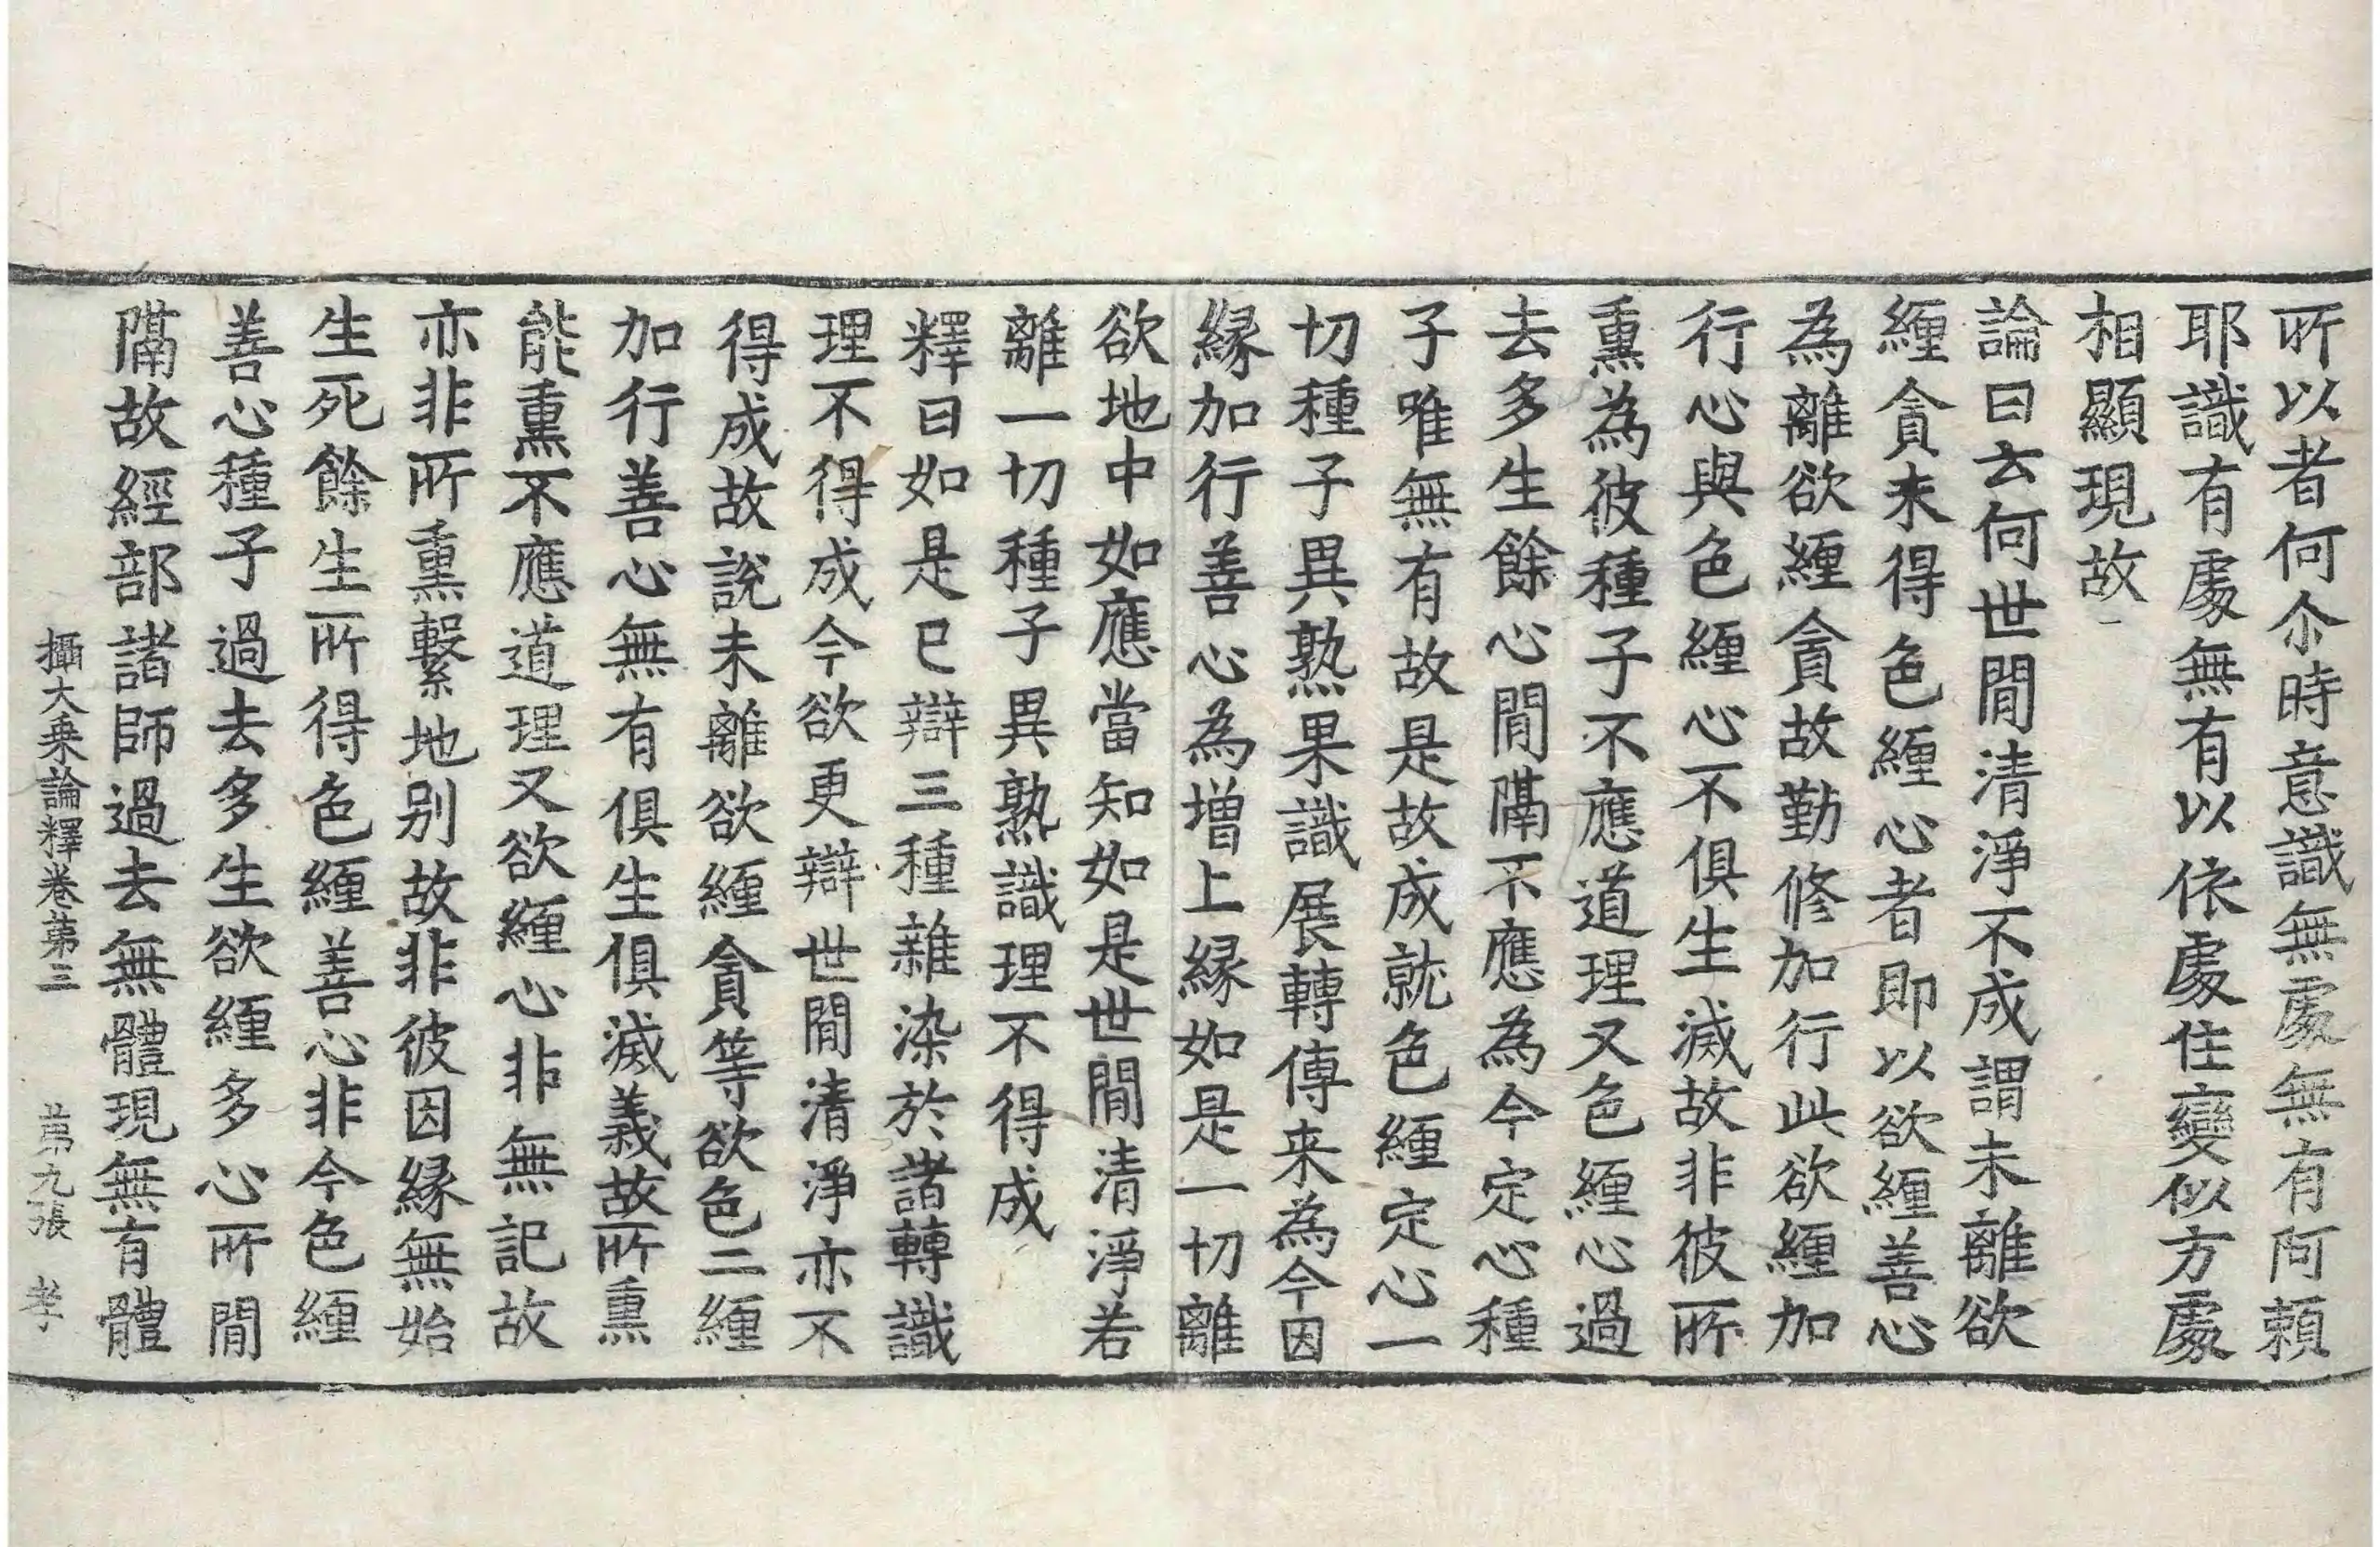 所以者何尒時意識無處無有阿頼
耶識有處無有以依處住變似方處
相顯現故
論曰云何世間清淨不成謂未離欲
纏貪未得色纏心者即以欲纏善心
為離欲纏貪故勤修加行此欲纏加
行心與色纏心不俱生滅故非彼所
熏為彼種子不應道理又色纏心過
去多生餘心間隔不應為今定心種
子唯無有故是故成就色纏定心一
切種子異熟果識展轉傳来為今因
緣加行善心為增上緣如是一切離
欲地中如應當知如是世間清淨若
離一切種子異熟識理不得成
釋曰如是已辯三種雜染於諸轉識
理不得成今欲更辯世間清淨亦不
得成故說未離欲纏貪等欲色二纏
加行善心無有俱生俱滅義故所熏
能熏不應道理又欲纏心非無記故
亦非所熏繫地別故非彼因緣無始
生死餘生所得色纏善心非今色纏
善心種子過去多生欲纏多心所間
隔故經部諸師過去無體現無有體
攝大乗論釋卷第三 第九張 孝